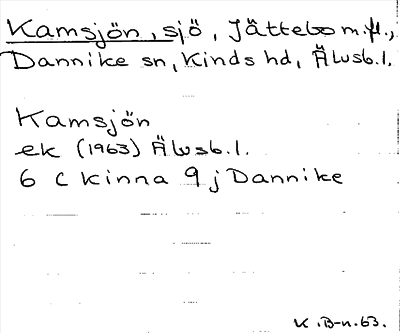 Kamsjön, sjö, Jättebo m.fl.,
Dannike sn, Kinds hd, Älvsb.l.
Kamsjön
ek (1963) Älvsb.l.
6 C Kinna 9 j Dannike
K.B-n.63.